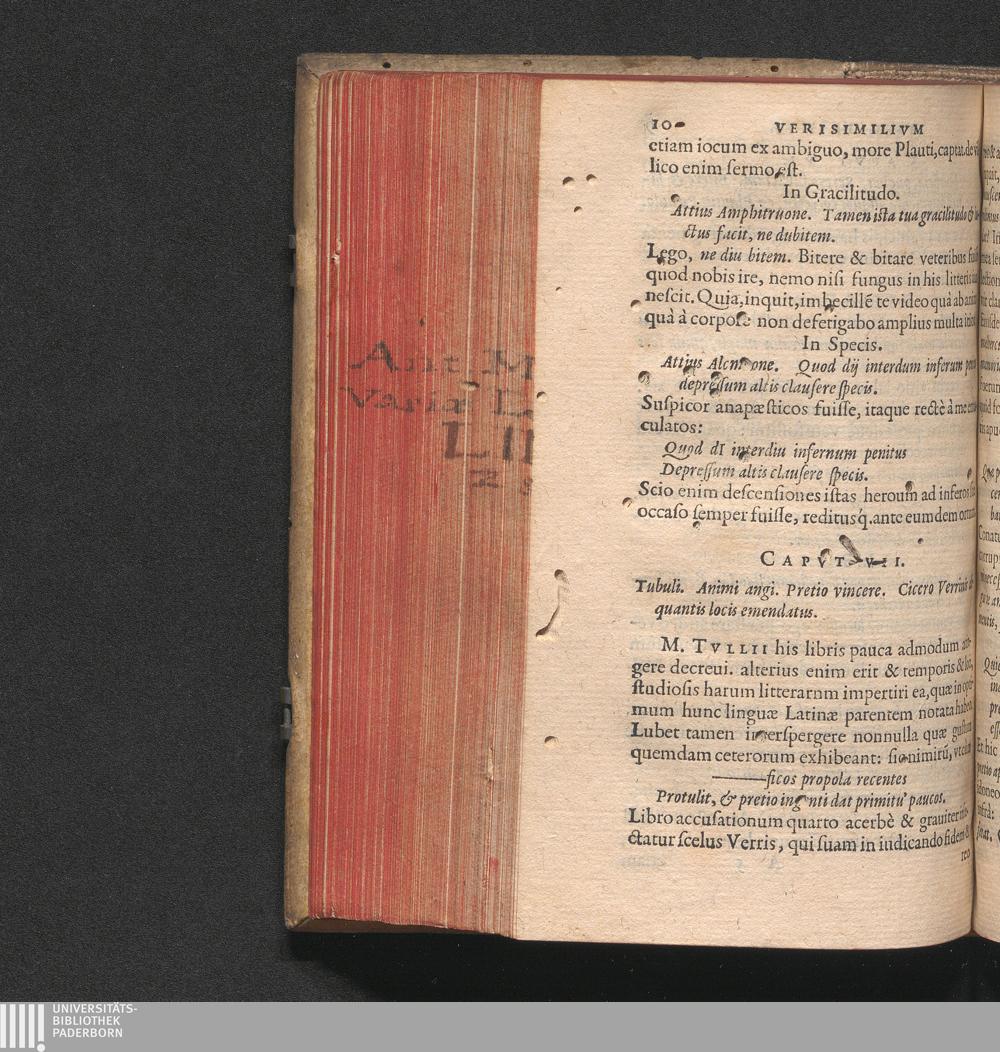 10 VERISIMILIVM
etiam iocum ex ambiguo, more Plauti, captat. de
lico enim ſermo eſt.
In Gracilitudo.
Attius Amphitruone. Tamen iſta tua gracilitudo &
ctus facit, ne dubitem.
Lego, ne diu bitem. Bitere & bitare veteribus
quod nobis ire, nemo niſi fungus in his litteris
neſcit. Quia, inquit, imbecillẽ te video quà ab
quà à corpore non defetigabo amplius multa
In Specis.
Attius Alcmeone. Quod dij interdum inferum
depreſſum altis clauſere ſpecis.
Suſpicor anapæſticos fuiſſe, itaque rectè à me
culatos:
Quod dI interdiu infernum penitus
Depreſſum altis clauſere ſpecis.
Scio enim deſcenſiones iſtas heroum ad inferos
occaſo ſemper fuiſſe, reditusq́. ante eumdem ortum
CAPVT VII.
Tubuli. Animi angi. Pretio vincere. Cicero
quantis locis emendatus.
M. TVLLII his libris pauca admodum
gere decreui. alterius enim erit & temporis &
ſtudioſis harum litterarnm impertiri ea, quæ in
mum hunc linguæ Latinæ parentem notata
Lubet tamen interſpergere nonnulla quæ
quemdam ceterorum exhibeant: ſic nimirũ,
ficos propola recentes
Protulit, & pretio ingenti dat primitu' paucos.
Libro accuſationum quarto acerbè & grauiter
ctatur ſcelus Verris, qui ſuam in iudicando fidem
Ant. M
Variæ
LII
UNIVERSITÄTS-
BIBLIOTHEK
PADERBORN